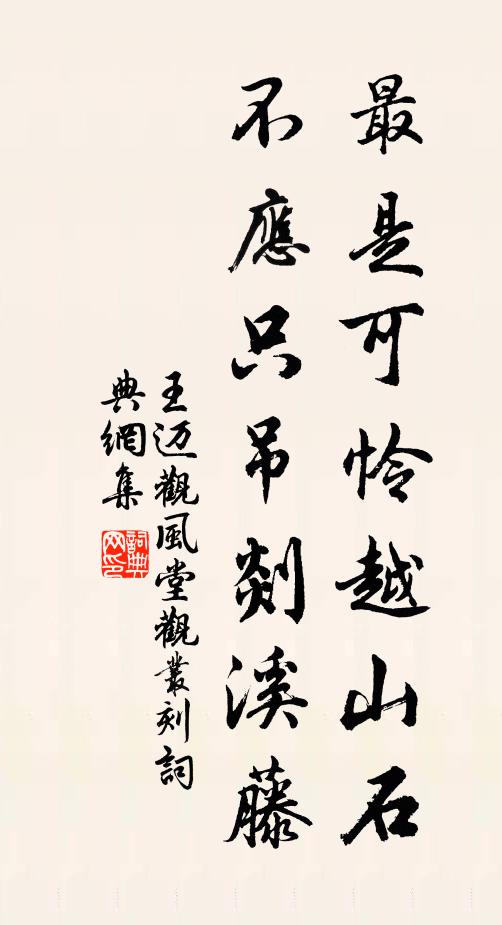 最是可怜越山石
不應只吊剡溪藤
王迈觀風堂觀叢刻詞
典網集
詞典网印